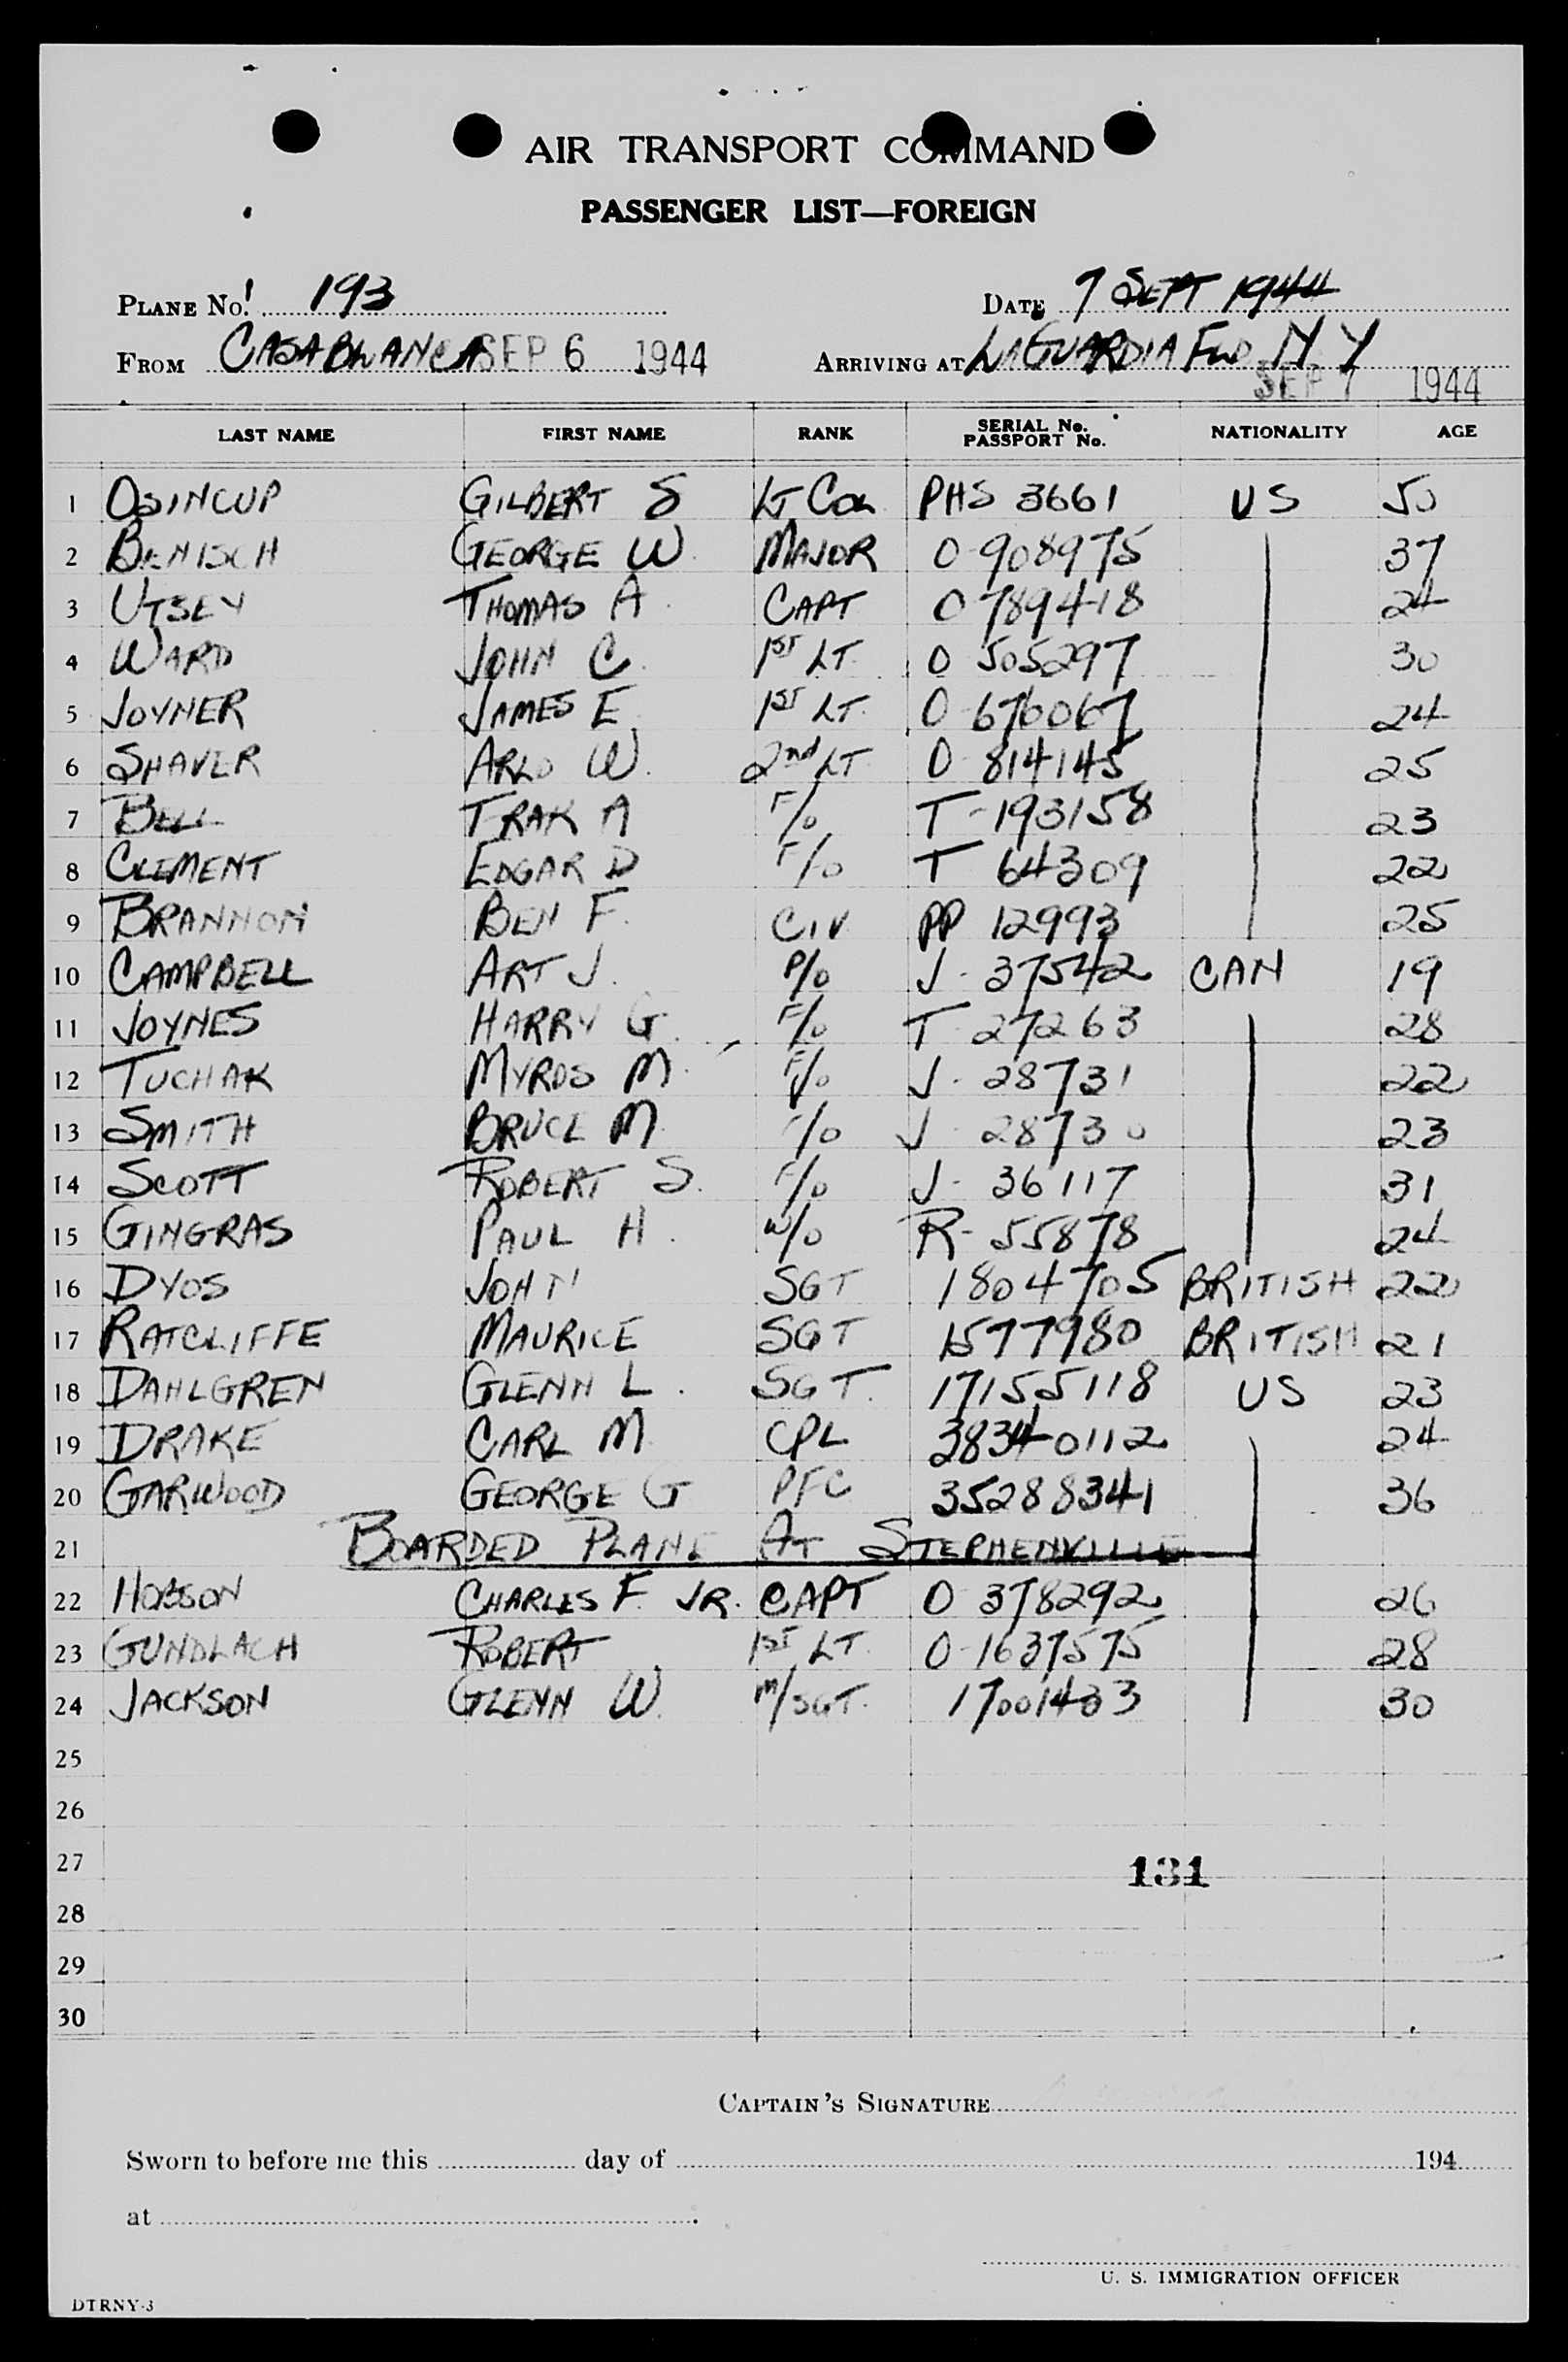 AIR TRANSPORT COMMAND
PASSENGER LIST—FOREIGN
PLANE No. 193 DATE 7 SEPT 1944
FROM CASABLANCA SEP 6 1944 ARRIVING AT LAGUARDIA FLD N Y
SEP 7 1944
LAST NAME FIRST NAME RANK SERIAL No. PASSPORT No. NATIONALITY AGE
1 OSINCUP GILBERT S LT COL PHS 3661 US 50
2 BENISCH GEORGE W. MAJOR O-908975 37
3 UTSEY THOMAS A. CAPT O 789418 24
4 WARD JOHN C. 1ST LT. O 505297 30
5 JOYNER JAMES E. 1ST LT. O-676067 24
6 SHAVER ARLO W. 2nd LT O-814145 25
7 BELL TRAK A F/O T-193158 23
8 CLEMENT EDGAR D F/O T 64309 22
9 BRANNON BEN F. CIV PP 12993 25
10 CAMPBELL ART J. P/O J-37542 CAN 19
11 JOYNES HARRY G. F/O T 27263 28
12 TUCHAK MYROS M. F/O J-28731 22
13 SMITH BRUCE M. F/O J-28730 23
14 SCOTT ROBERT S. F/O J-36117 31
15 GINGRAS PAUL H. W/O R-55878 24
16 DYOS JOHN SGT 1804705 BRITISH 22
17 RATCLIFFE MAURICE SGT 1577980 BRITISH 21
18 DAHLGREN GLENN L. SGT. 17155118 US 23
19 DRAKE CARL M. CPL 38340112 24
20 GARWOOD GEORGE G PFC 35288341 36
21 BOARDED PLANE AT STEPHENVILLE
22 HOBSON CHARLES F. JR. CAPT O 378292 26
23 GUNDLACH ROBERT 1ST LT. O-1637575 28
24 JACKSON GLENN W. M/SGT. 17001433 30
25
26
27 131
28
29
30
CAPTAIN'S SIGNATURE
Sworn to before me this day of 194
at
U. S. IMMIGRATION OFFICER
DTRNY-3